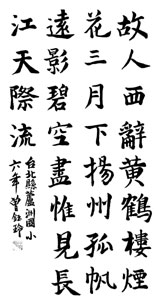 故人西辭黃鶴樓煙
花三月下揚州孤帆
遠影碧空盡惟見長
江天際流
台北縣蘆洲國小
六年 曾鈺玲